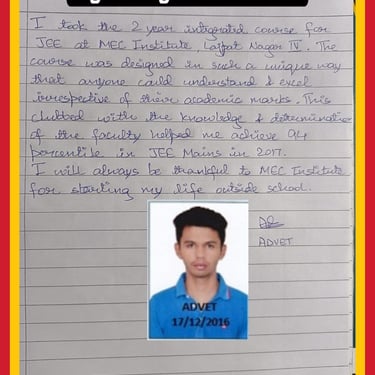 I took the 2 year integrated course for
JEE at MEC Institute, Lajpat Nagar IV. The
course was designed in such a unique way
that anyone could understand & excel
irrespective of their academic marks. This
clubbed with the knowledge & determination
of the faculty helped me achieve 94
percentile in JEE Mains in 2017.
I will always be thankful to MEC Institute
for starting my life outside school.
ADVET
ADVET
17/12/2016